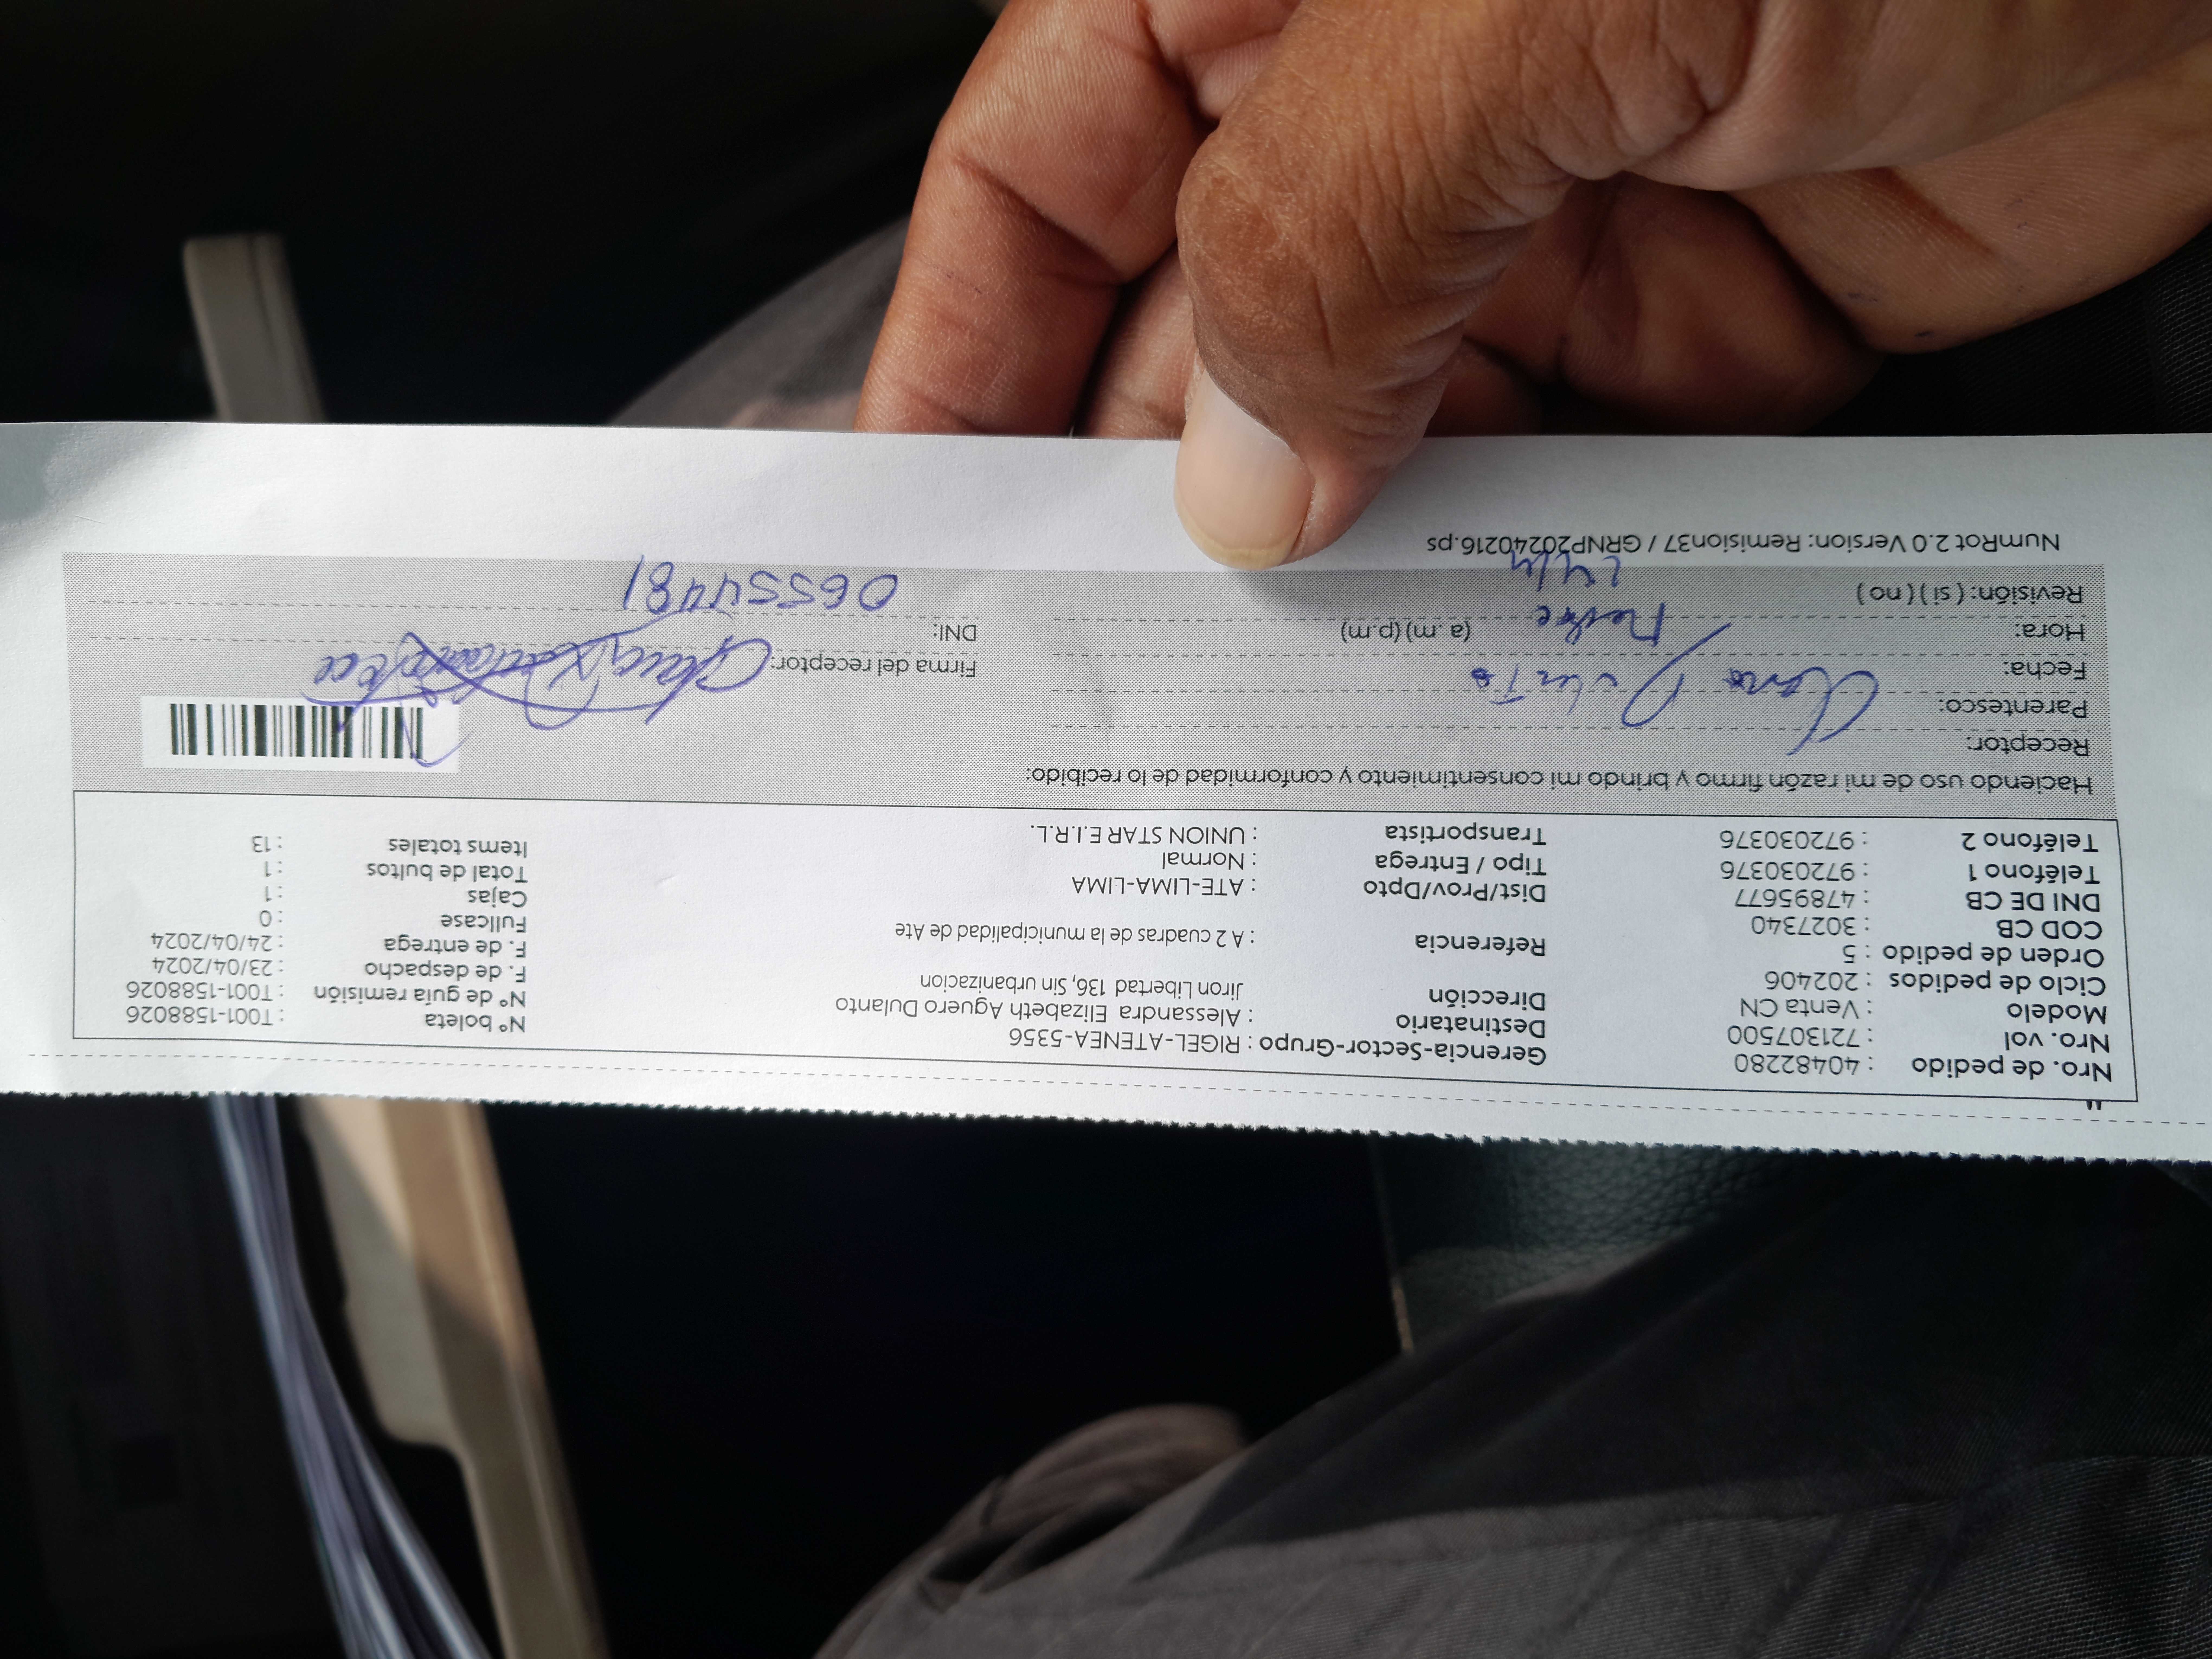 Nro. de pedido : 40482280
Nro. vol : 721307500
Modelo : Venta CN
Ciclo de pedidos : 202406
Orden de pedido : 5
COD CB : 3027340
DNI DE CB : 47895677
Teléfono 1 : 972030376
Teléfono 2 : 972030376
Gerencia-Sector-Grupo : RIGEL-ATENEA-5356
Destinatario : Alessandra Elizabeth Aguero Dulanto
Dirección Jiron Libertad 136, Sin urbanizacion
Referencia : A 2 cuadras de la municipalidad de Ate
Dist/Prov/Dpto : ATE-LIMA-LIMA
Tipo / Entrega : Normal
Transportista : UNION STAR E.I.R.L.
N° boleta : T001-1588026
N° de guía remisión : T001-1588026
F. de despacho : 23/04/2024
F. de entrega : 24/04/2024
Fullcase : 0
Cajas : 1
Total de bultos : 1
Items totales : 13
Haciendo uso de mi razón firmo y brindo mi consentimiento y conformidad de lo recibido:
Receptor:
Parentesco:
Fecha:
Hora: (a. m) (p.m)
Revisión: ( si ) ( no )
Firma del receptor:
DNI: 06554481
NumRot 2.0 Version: Remision37 / GRNP20240216.ps